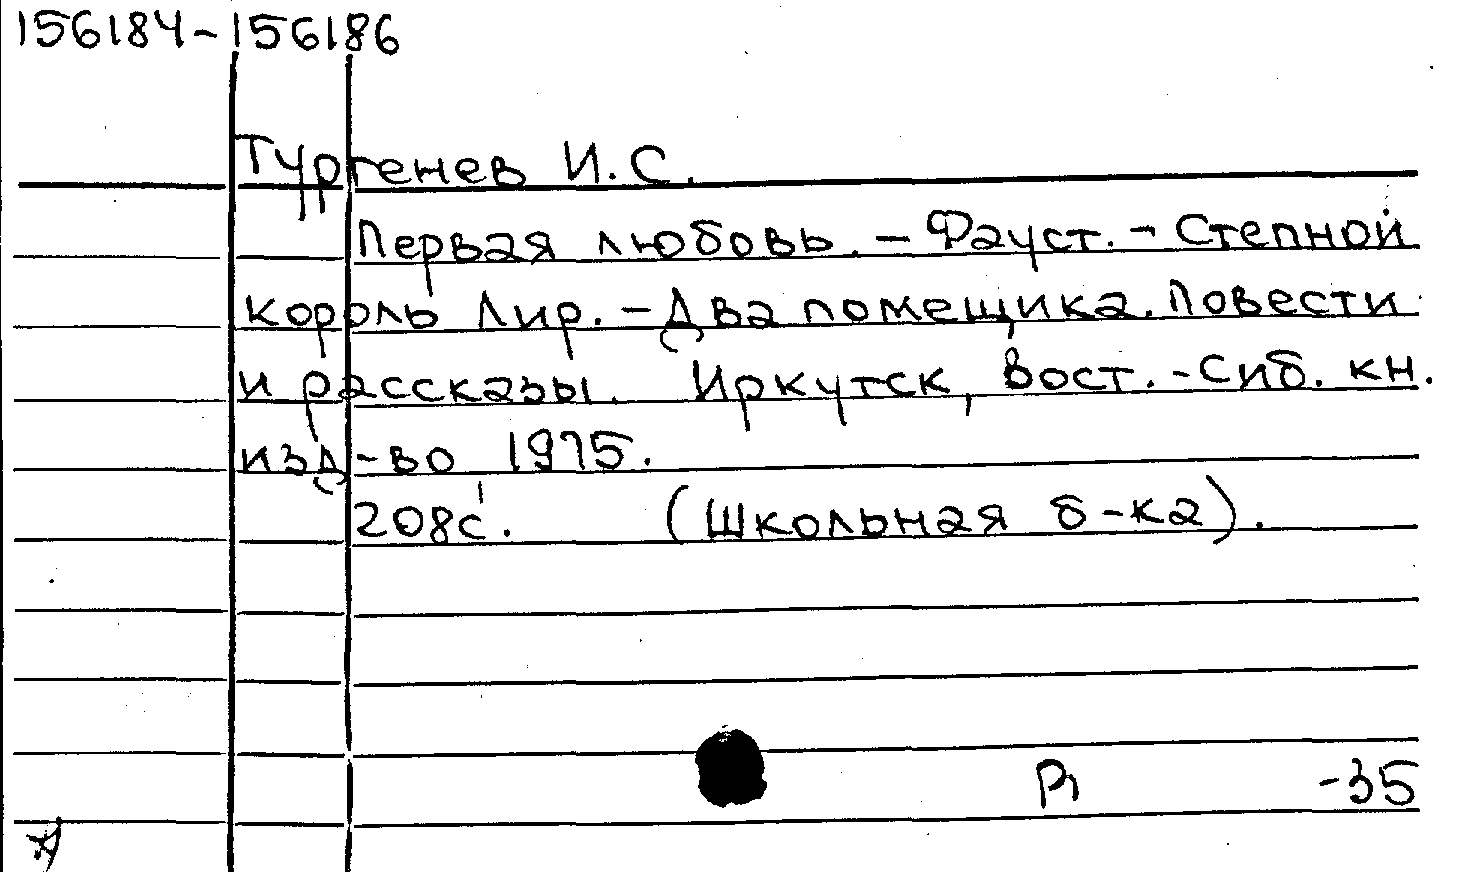 156184-156186
Тургенев И.С.
Первая любовь. - Фауст. - Степной
король Лир. - Два помещика. Повести
и рассказы. Иркутск, Вост.-Сиб. кн.
изд-во 1975.
208с. (Школьная б-ка).
Р1 -35